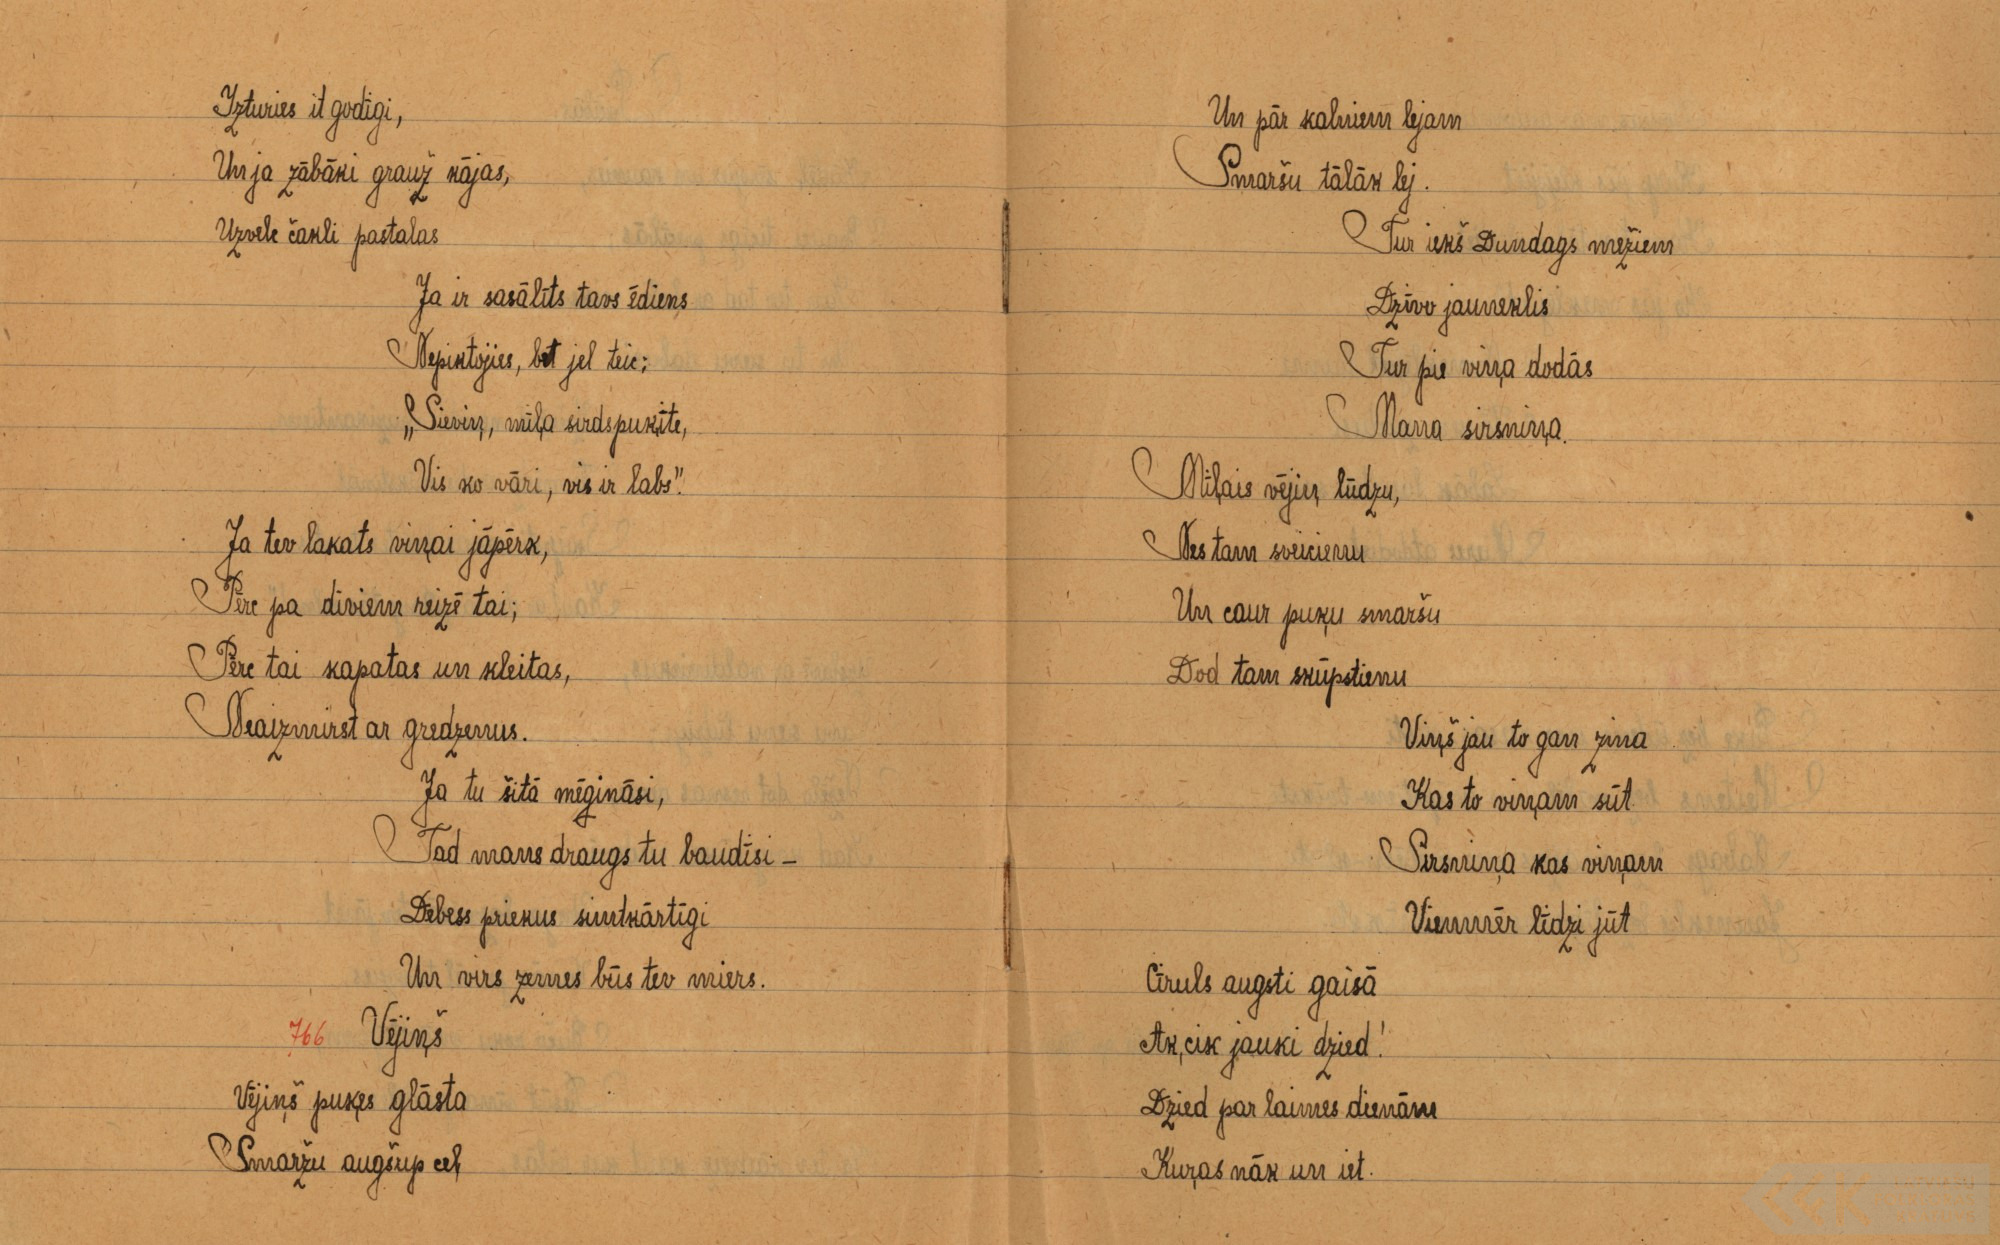 Izturies it godīgi,
Un ja zābāki grauž kājas,
Uzvelc čakli pastalas
Ja ir sasālīts tavs ēdiens
Nepiktojies, bet jel teic:
„Sieviņ, mīļa sirdspuķīte,
Vis ko vāri, vis ir labs".
Ja tev lakats viņai jāpērk,
Pērc pa diviem reizē tai;
Pērc tai kapatas un kleitas,
Neaizmirst ar gredzenus.
Ja tu šitā mēgināsi,
Tad mans draugs tu baudīsi –
Debess priekus simtkārtīgi
Un virs zemes būs tev miers.
766 Vējiņš
Vējiņš puķes glāsta
Smaržu augšup ceļ
Un pār kalniem lejam
Smaršu tālāk lej.
Tur iekš Dundags mežiem
Dzīvo jauneklis
Tur pie viņa dodās
Mana sirsniņa.
Mīļais vējiņ lūdzu,
Nes tam sveicienu
Un caur puķu smaršu
Dod tam skūpstienu
Viņš jau to gan zina
Kas to viņam sūt
Sirsniņa kas viņam
Vienmēr līdzi jūt
Cīruls augsti gaisā
Ak, cik jauki dzied!
Dzied par laimes dienām
Kuŗas nāk un iet.